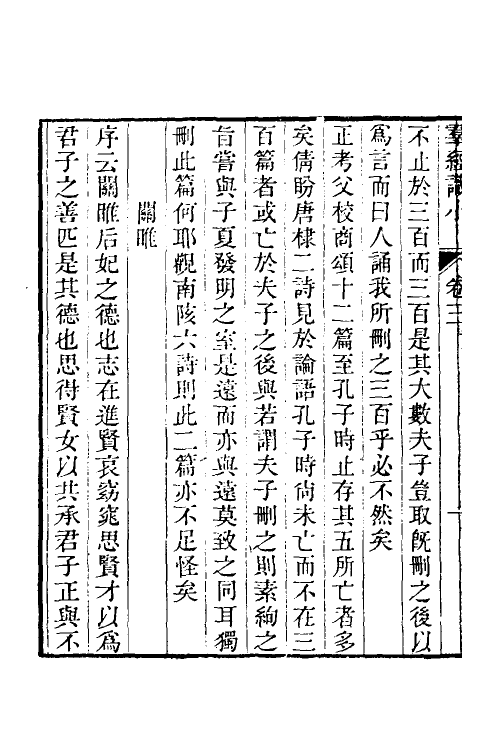 羣經識小 卷三
不止於三百而三百是其大數夫子豈取旣刪之後以
爲言而曰人誦我所刪之三百乎必不然矣
正考父校商頌十二篇至孔子時止存其五所亡者多
矣倩盼唐棣二詩見於論語孔子時尚未亡而不在三
百篇者或亡於夫子之後與若謂夫子刪之則素絢之
旨嘗與子夏發明之室是遠而亦與遠莫致之同耳獨
刪此篇何耶觀南陔六詩則此二篇亦不足怪矣
關雎
序云關雎后妃之德也志在進賢哀窈窕思賢才以爲
君子之善匹是其德也思得賢女以共承君子正與不